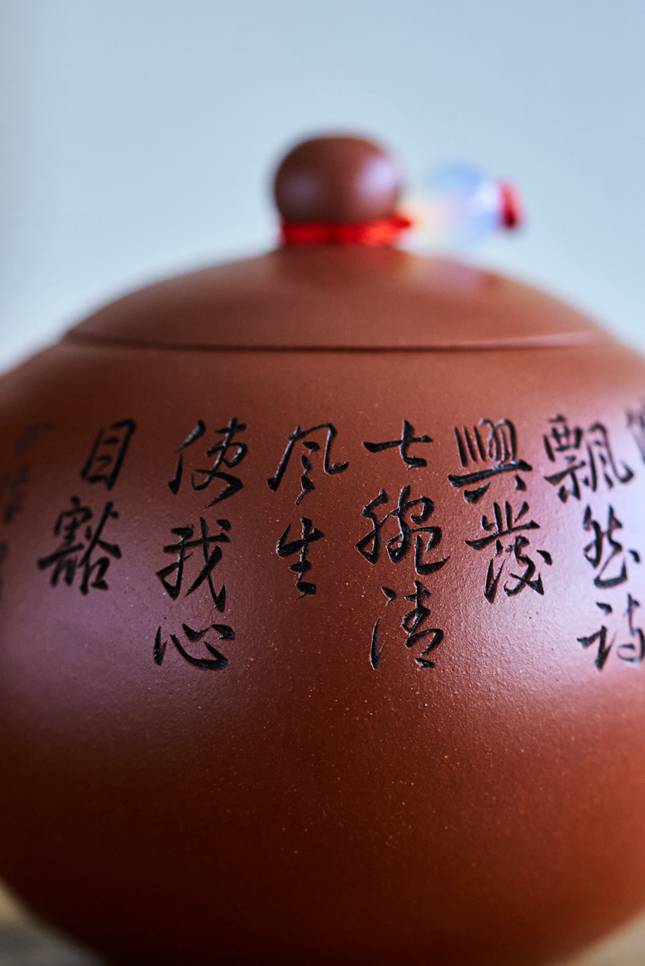 飘然诗
興發
七碗清
风生
使我心
目豁